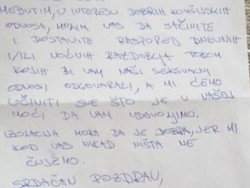 MEĐUTIM, U INTERESU DOBRIH KOMŠIJSKIH
ODNOSA, MOLIM VAS DA SAČINITE
I DOSTAVITE RASPORED DNEVNIH
I/ILI NOĆNIH RAZDOBLJA TOKOM
KOJIH BI VAM NAŠI SEKSUALNI
ODNOSI ODGOVARALI, A MI ĆEMO
UČINITI SVE ŠTO JE U NAŠOJ
MOĆI DA VAM UDOVOLJIMO.
IZOLACIJA MORA DA JE DOBRA, JER MI
KOD VAS NIKAD NIŠTA NE
ČUJEMO.
SRDAČAN POZDRAV,